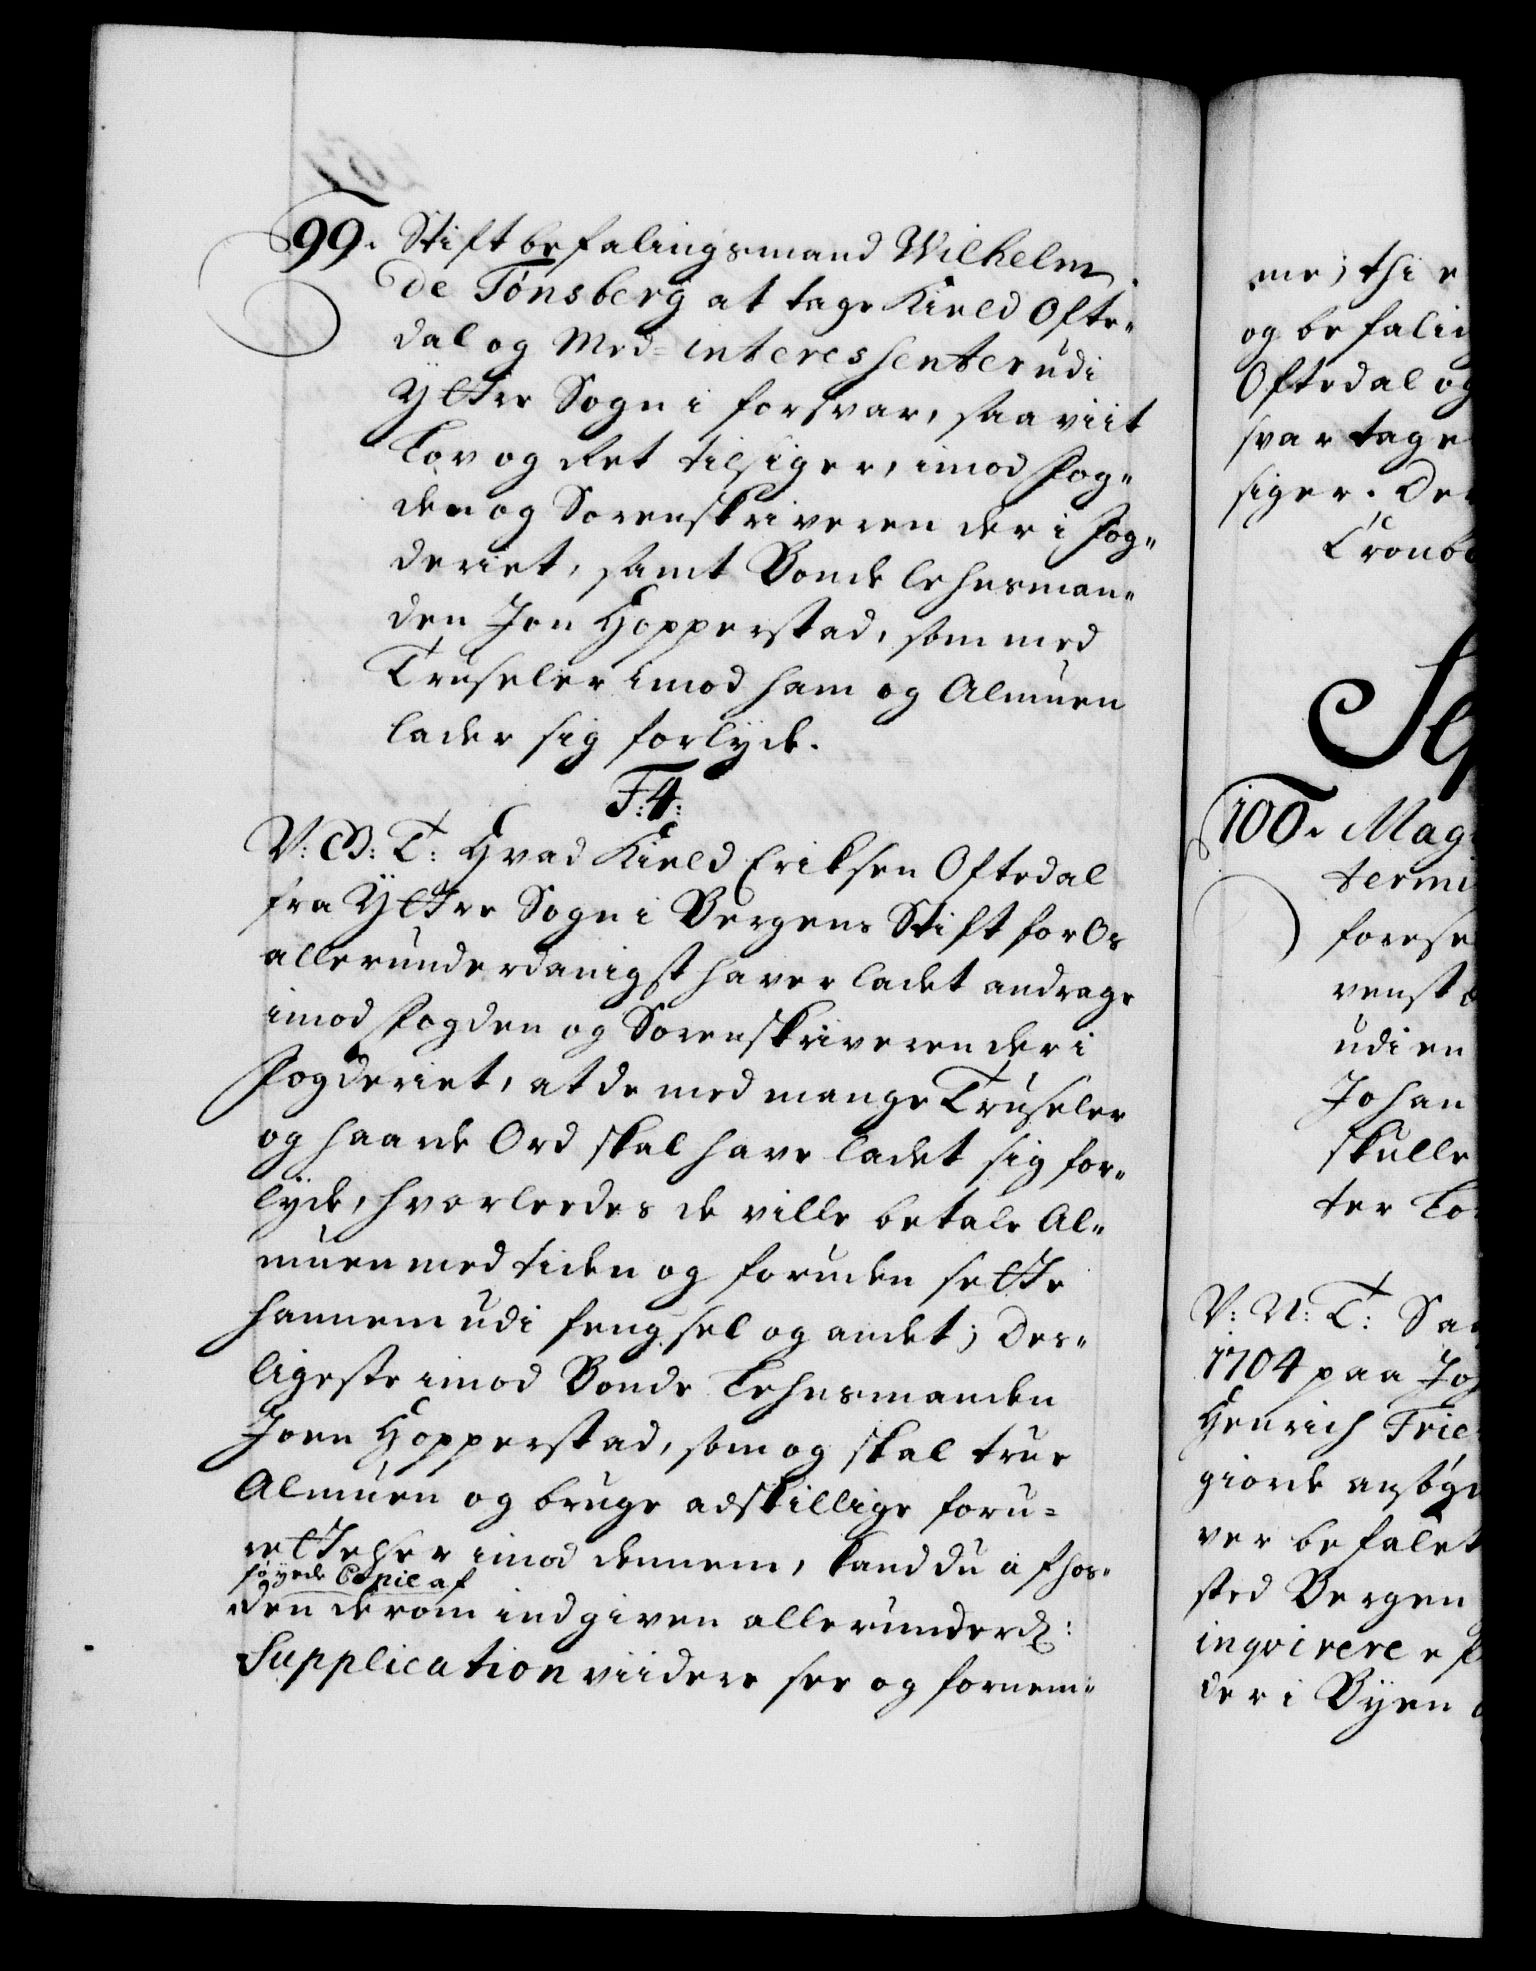 99. Stiftbefalingsmand Wilhelm
de Tønsberg at tage Kield Ofte„
dal og Med-interessenter udi
Yttre Sogn i forsvar, saaviit
Lov og Ret tilsiger, imod Fog„
den og Sorenskriveren der i Fog„
deriet, samt Bonde lehnsman„
den Jon Hopperstad, som med
Truseler imod ham og Almuen
lader sig forlyde.
F: 4:
V: G: T: Hvad Kield Eriksen Oftedal
fra Yttre Sogn i Bergens Stift for Os
allerunderdanigst haver ladet andrage
imod Fogden og Sorenskriveren der i
Fogderiet, at de med mange Truseler
og haarde Ord skal have ladet sig for„
lyde, hvorledes de ville betale Al„
muen med tiden og foruden sette
hannem udi fengsel og andet; Des„
ligeste imod Bonde Lehnsmanden
Joen Hopperstad, som og skal true
Almuen og bruge adskillige foru-
rettelser imod dennem, kand du af hos„
føyede Copie af
den derom indgiven allerunderd:
Supplication viidere see og fornem„
me; thi e
og befalin
Oftedal og
svar tage
siger. Der
Cronb
Sep
100. Mag
termi
forese
venst
udi en
Johan
skulle
ter Lo
V: N: T: Sa
1704 paa Jo
Henrich Frie
giorde ansøgn
ver befalet
sted Bergen
inqvirere ef
der i Byen